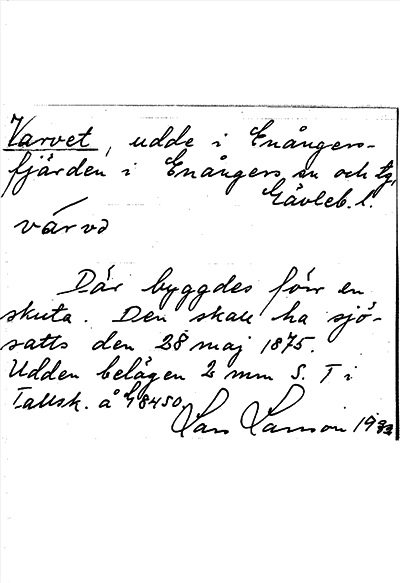 Varvet, udde i Enångers-
fjärden i Enångers sn och tg,
Gävleb. l.
várvə
Där byggdes förr en
skuta. Den skall ha sjö-
satts den 28 maj 1875.
Udden belägen 2 mm S. T i
Tallsk. å 98450.
Lars Larsson 1933